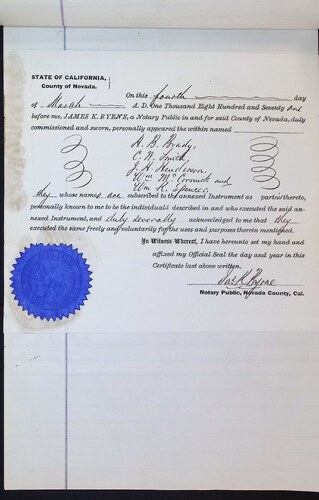 STATE OF CALIFORNIA,
County of Nevada.
On this fourth day
of March A. D. One Thousand Eight Hundred and Seventy one
before me, JAMES K. BYRNE, a Notary Public in and for said County of Nevada, duly
commissioned and sworn, personally appeared the within named
H. B. Brady,
C. W. Smith,
J. H. Henderson,
Wm McCormick and
Wm K. Spencer,
they whose names are subscribed to the annexed Instrument as parties thereto,
personally known to me to be the individuals described in and who executed the said an-
nexed Instrument, and duly severally acknowledged to me that they
executed the same freely and voluntarily for the uses and purposes therein mentioned.
In Witness Whereof, I have hereunto set my hand and
affixed my Official Seal the day and year in this
Certificate last above written.
Jas K Byrne
Notary Public, Nevada County, Cal.